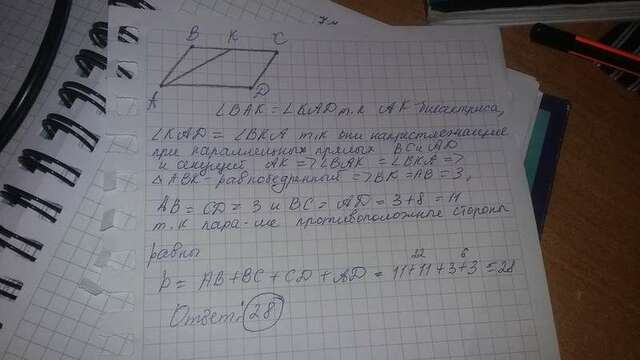 B K C
A D
∠BAK = ∠KAD т.к AK биссектриса,
∠KAD = ∠BKA т.к они накрестлежащие
при параллельных прямых BC и AD
и секущей AK => ∠BAK = ∠BKA =>
△ABK - равнобедренный => BK = AB = 3,
AB = CD = 3 и BC = AD = 3+8 = 11
т.к пара-ме противоположные стороны
равны
22 6
P = AB + BC + CD + AD = 11+11+3+3 = 28
Ответ: 28